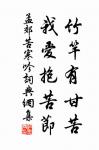 竹竿有甘苦
我愛抱苦節
孟郊苦寒吟詞典網集